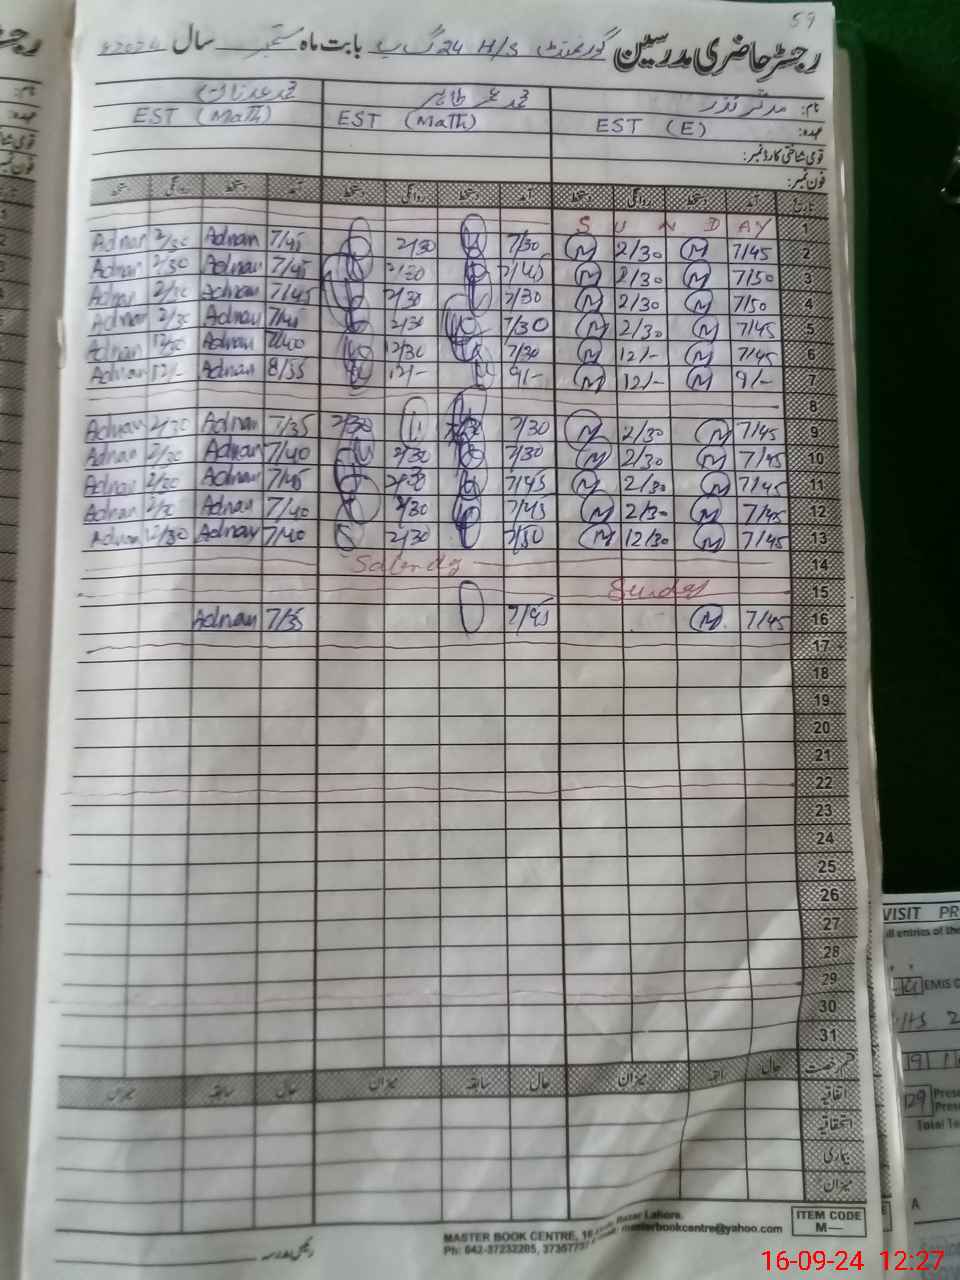 59
رجسٹر حاضری مدرسین گورنمنٹ H/S 24 گ ب بابت ماہ ستمبر سال 2024ء
نام: مدثر نذر محمد عمر طاہر محمد عدنان
عہدہ: EST (E) EST (Math) EST (Math)
قومی شناختی کارڈ نمبر:
فون نمبر:
تاریخ آمد دستخط روانگی دستخط آمد دستخط روانگی دستخط آمد دستخط روانگی دستخط
1 S U N D AY
2 7/45 M 2/30 M 7/30 2/30 7/45 Adnan 2/30 Adnan
3 7/50 M 2/30 M 7/45 2/30 7/45 Adnan 2/30 Adnan
4 7/50 M 2/30 M 7/30 2/30 7/45 Adnan 2/30 Adnan
5 7/45 M 2/30 M 7/30 2/30 7/45 Adnan 2/30 Adnan
6 7/45 M 12/- M 7/30 12/30 7/40 Adnan 12/30 Adnan
7 9/- M 12/- M 9/- 12/- 8/55 Adnan 12/- Adnan
8
9 7/45 M 2/30 M 7/30 2/30 7/35 Adnan 2/30 Adnan
10 7/45 M 2/30 M 7/30 2/30 7/40 Adnan 2/30 Adnan
11 7/45 M 2/30 M 7/45 2/30 7/45 Adnan 2/30 Adnan
12 7/45 M 2/30 M 7/45 2/30 7/40 Adnan 2/30 Adnan
13 7/45 M 12/30 M 7/50 2/30 7/40 Adnan 12/30 Adnan
14
15 Sunday
16 7/45 M 7/45 7/35 Adnan
17
18
19
20
21
22
23
24
25
26
27
28
29
30
31
قسم رخصت حال سابقہ میزان حال سابقہ میزان حال سابقہ میزان
اتفاقیہ
استحقاقیہ
بیماری
میزان
ITEM CODE
M—
MASTER BOOK CENTRE, 16 Bazar Lahore.
Ph: 042-37232205, masterbookcentre@yahoo.com
رئیس مدرسہ
VISIT PR
all entries of the
EMIS C
129
Prese
Prese
Total Te
A
16-09-24 12:27